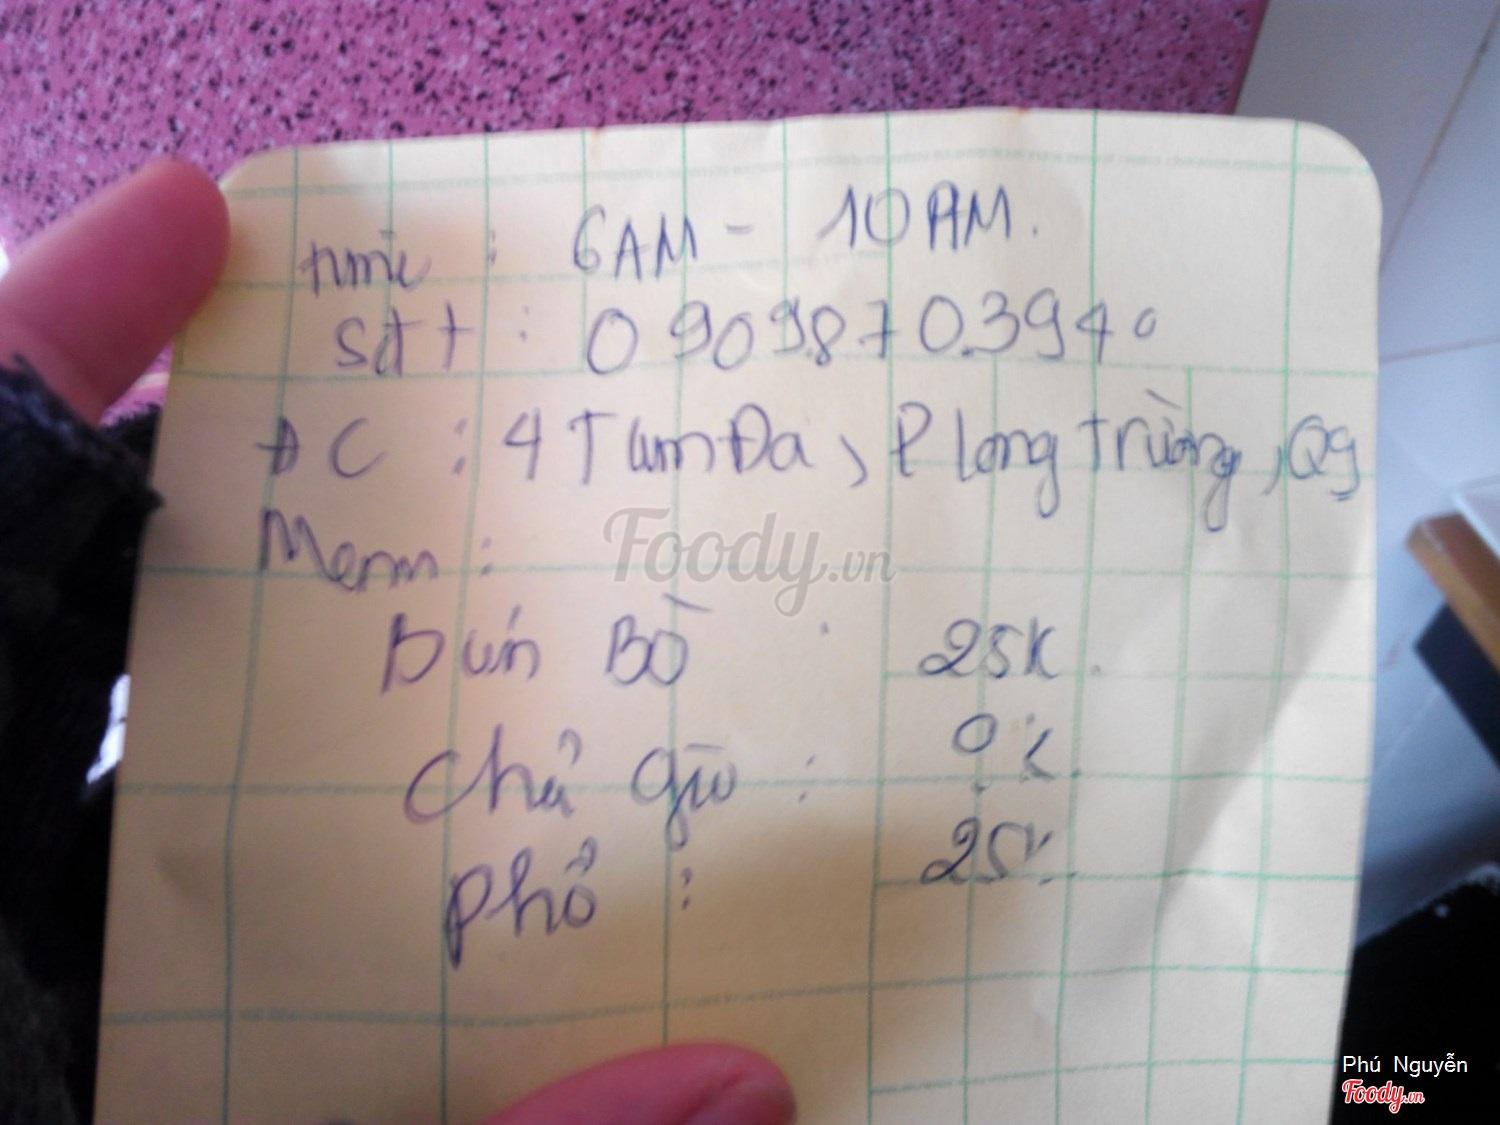 time : 6AM - 10AM.
sđt : 0909.870.3940
ĐC : 4 Tam Đa, P Long Trường, Q9
Menu :
Bún Bò : 25K.
Chả giò : K.
Phở : 25K.
Foody.vn
Phú Nguyễn
Foody.vn